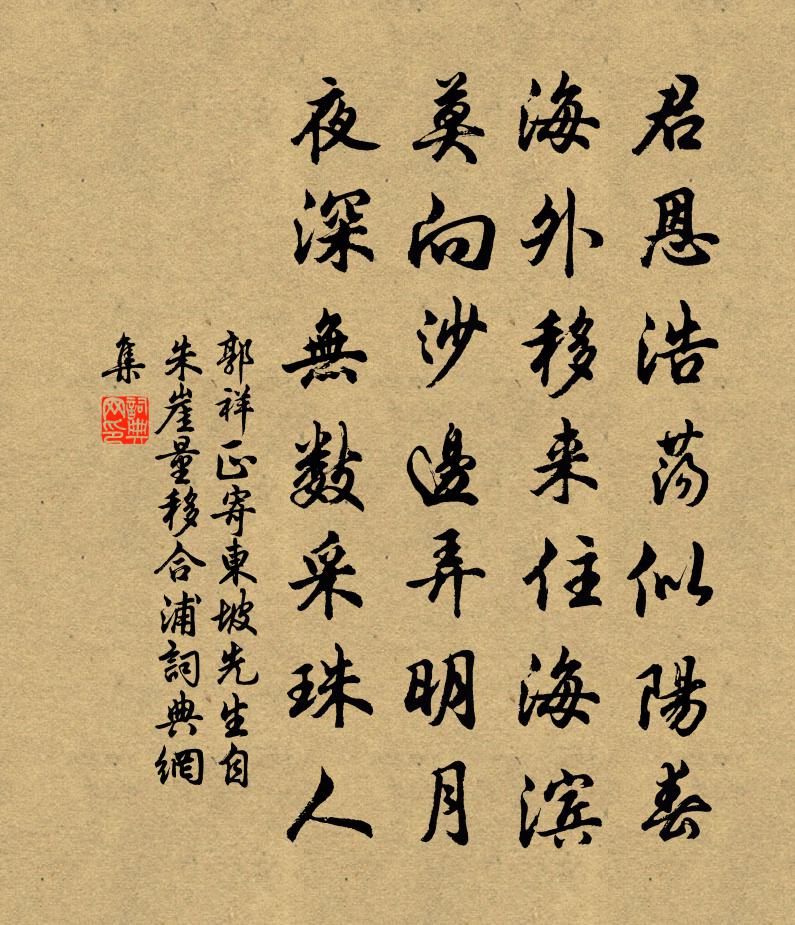 君恩浩荡似陽春
海外移来住海滨
莫向沙邊弄明月
夜深無数采珠人
郭祥正寄東坡先生自
朱崖量移合浦詞典網
集
詞典
网印